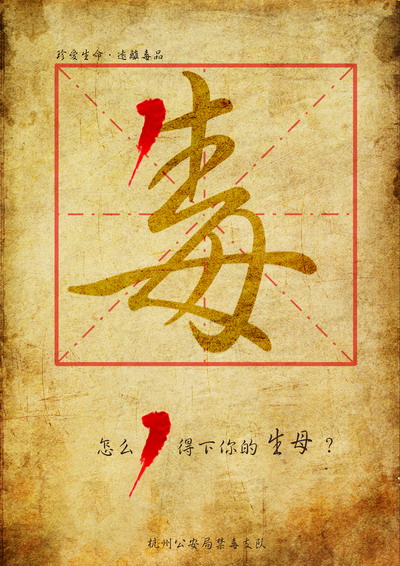 珍爱生命·远離毒品
毒
怎么丿得下你的生母？
杭州公安局禁毒支队